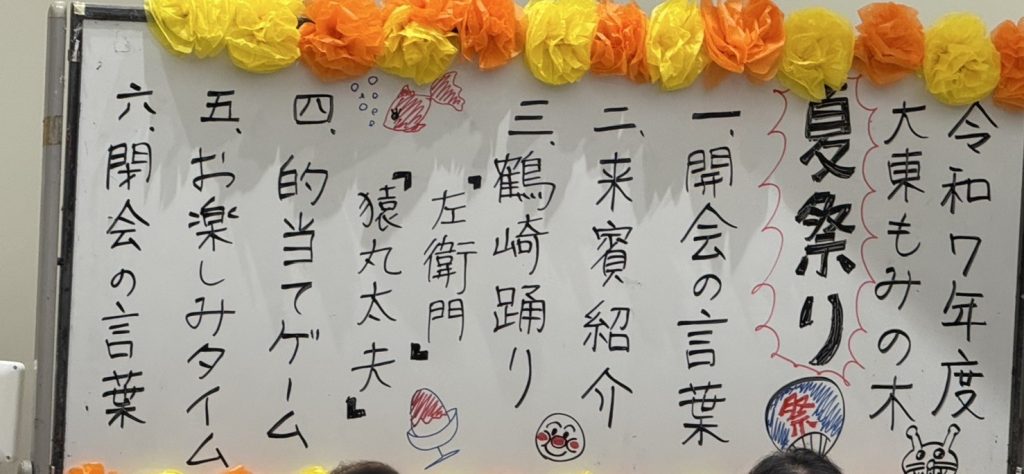 令和7年度
大東もみの木
夏祭り
一、開会の言葉
二、来賓紹介
三、鶴崎踊り
『左衛門』
『猿丸太夫』
四、的当てゲーム
五、お楽しみタイム
六、閉会の言葉
祭